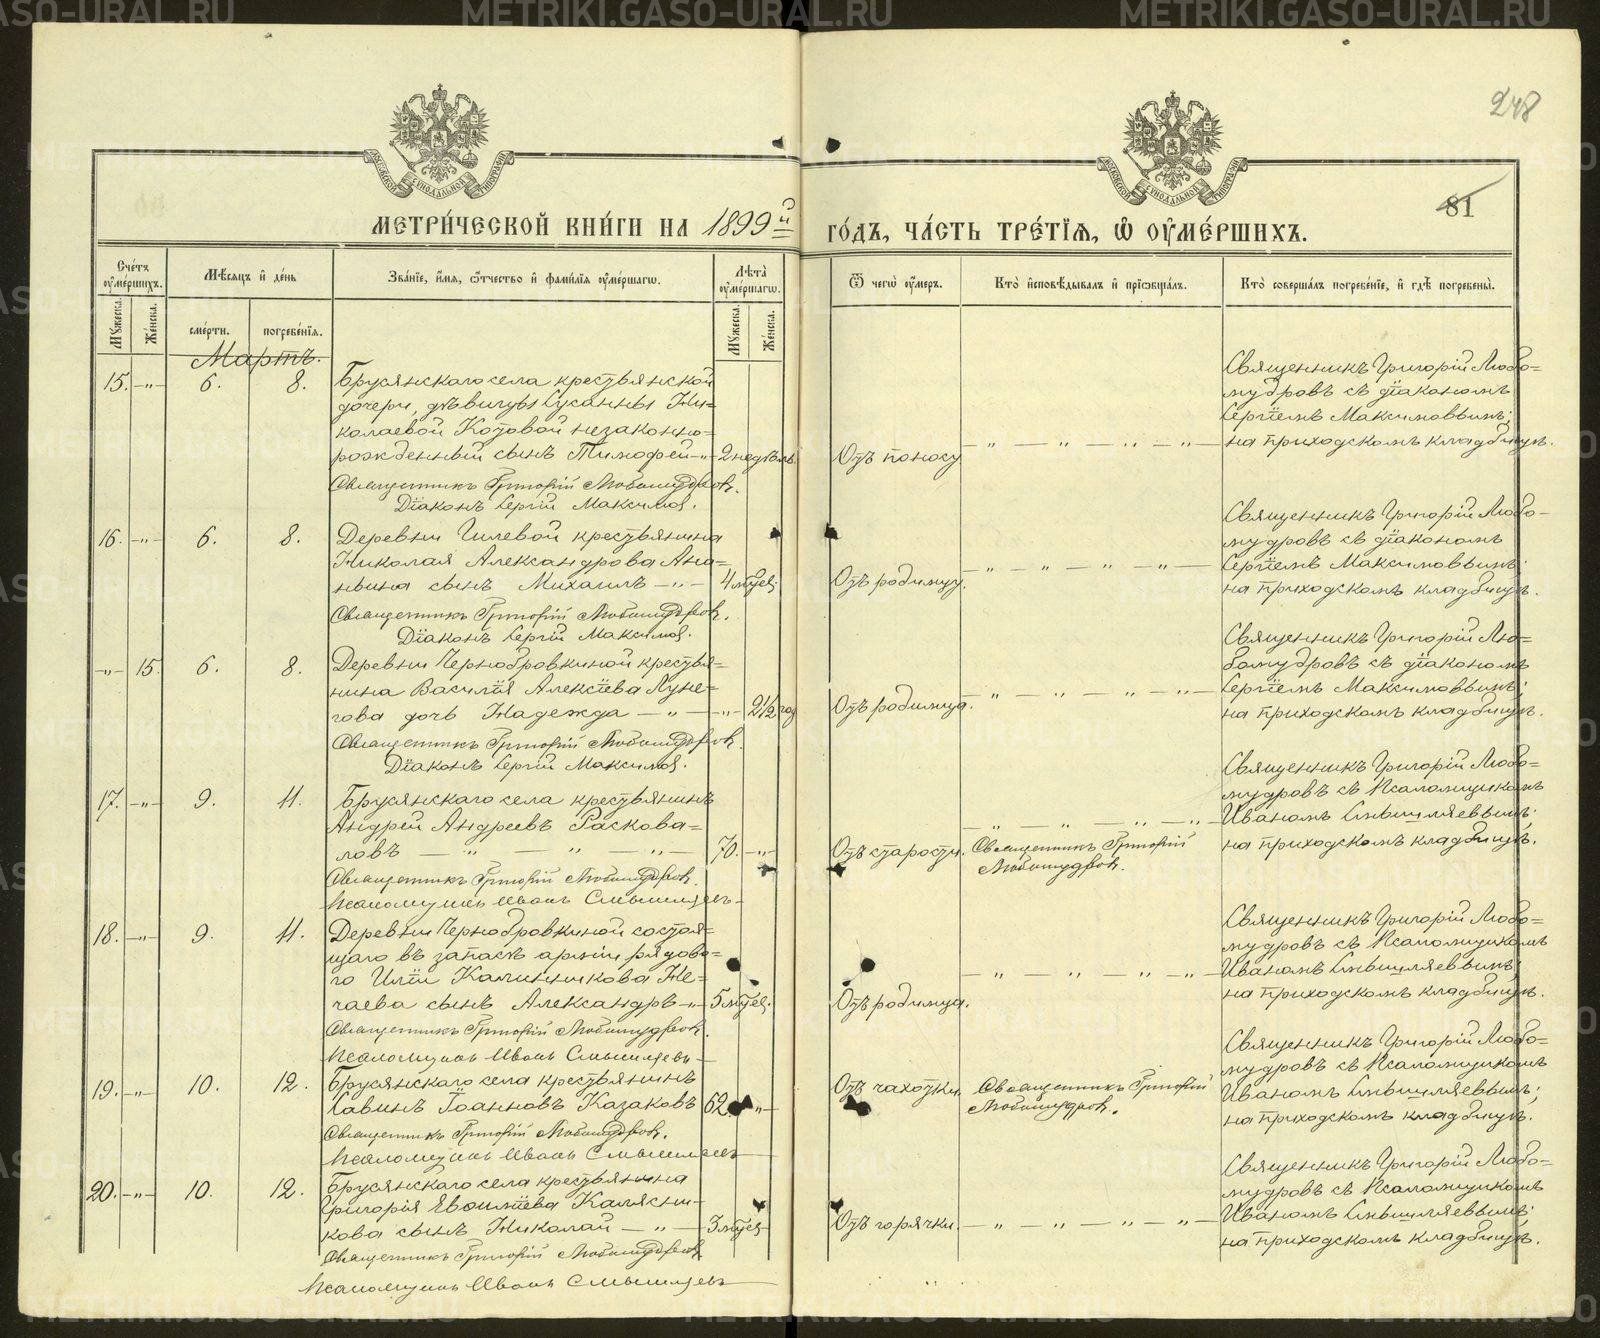 248
81
МЕТРИ́ЧЕСКОЙ КНИ́ГИ НА 1899й
ГО́ДЪ, ЧА́СТЬ ТРЕ́ТІЯ, Ѿ ОУ҆МЕ́РШИХЪ.
Сче́тъ оу҆ме́ршихъ.
Мѣ́сяцъ и҆ де́нь
Зва́ніе, и҆́мя, ѻ҆́тчество и҆ фами́лія оу҆ме́ршагѡ.
Лѣта̀ оу҆ме́ршагѡ.
Мꙋ́жеска.
Же́нска.
сме́рти.
погребе́нїя.
Мꙋ́жеска.
Же́нска.
Ѿ чегѡ̀ оу҆́меръ.
Кто̀ и҆сповѣ́дывалъ и҆ прїѡбща́лъ.
Кто̀ соверша́лъ погребе́нїе, и҆ гдѣ̀ погребены̀.
Мартъ.
15. -„- 6. 8.
Брусянскаго села крестьянской
дочери, дѣвицы Сусанны Ни=
колаевой Котовой незаконно=
рожденный сынъ Тимофей -„- 2 недѣль.
Священникъ Григорій Любомудровъ.
Діаконъ Сергій Максимов.
Отъ поносу
- „ - „ - „ - „ -
Священникъ Григорій Любо=
мудровъ съ діакономъ
Сергіемъ Максимовымъ;
на приходскомъ кладбищѣ.
16. -„- 6. 8.
Деревни Гилевой крестьянина
Николая Александрова Ана=
ньина сынъ Михаилъ -„- 4 мѣсец
Священникъ Григорій Любомудровъ.
Діаконъ Сергій Максимов.
Отъ родимцу.
- „ - „ - „ - „ -
Священникъ Григорій Любо-
мудровъ съ діакономъ
Сергіемъ Максимовымъ;
на приходскомъ кладбищѣ.
-„- 15. 6. 8.
Деревни Чернобровкиной крестья=
нина Василія Алексіева Луне=
гова дочь Надежда -„- -„- 2½ год
Священникъ Григорій Любомудровъ.
Діаконъ Сергій Максимов.
Отъ родимца.
- „ - „ - „ - „ -
Священникъ Григорій Лю=
бомудровъ съ діакономъ
Сергіемъ Максимовымъ;
на приходскомъ кладбищѣ.
17. -„- 9. 11.
Брусянскаго села крестьянинъ
Андрей Андреевъ Раскова=
ловъ - „ - „ - „ - 70. -„-
Священникъ Григорій Любомудровъ.
Псаломщикъ Иванъ Смышляевъ
Отъ старости.
- „ - „ - „ - „ -
Священникъ Григорій
Любомудровъ.
Священникъ Григорій Любо=
мудровъ съ Псаломщикомъ
Иваномъ Смышляевымъ;
на приходскомъ кладбищѣ.
18. -„- 9. 11.
Деревни Чернобровкиной состоя=
щаго въ запасѣ арміи рядово=
го Иліи Калинникова Не=
чаева сынъ Александръ -„- 5 мѣсец.
Священникъ Григорій Любомудровъ.
Псаломщикъ Иванъ Смышляевъ
Отъ родимца.
- „ - „ - „ - „ -
Священникъ Григорій Любо=
мудровъ съ Псаломщикомъ
Иваномъ Смышляевымъ;
на приходскомъ кладбищѣ.
19. -„- 10. 12.
Брусянскаго села крестьянинъ
Савинъ Іоанновъ Казаковъ 62. -„-
Священникъ Григорій Любомудровъ.
Псаломщикъ Иванъ Смышляевъ
Отъ чахотки.
Священникъ Григорій
Любомудровъ.
Священникъ Григорій Любо-
мудровъ съ Псаломщикомъ
Иваномъ Смышляевымъ;
на приходскомъ кладбищѣ.
20. -„- 10. 12.
Брусянскаго села крестьянина
Григорія Евѳиміева Калясни-
кова сынъ Николай -„- 3 мѣсец
Священникъ Григорій Любомудровъ
Псаломщикъ Иванъ Смышляевъ
Отъ горячки.
- „ - „ - „ - „ -
Священникъ Григорій Любо=
мудровъ съ Псаломщикомъ
Иваномъ Смышляевымъ;
на приходскомъ кладбищѣ.
METRIKI.GASO-URAL.RU